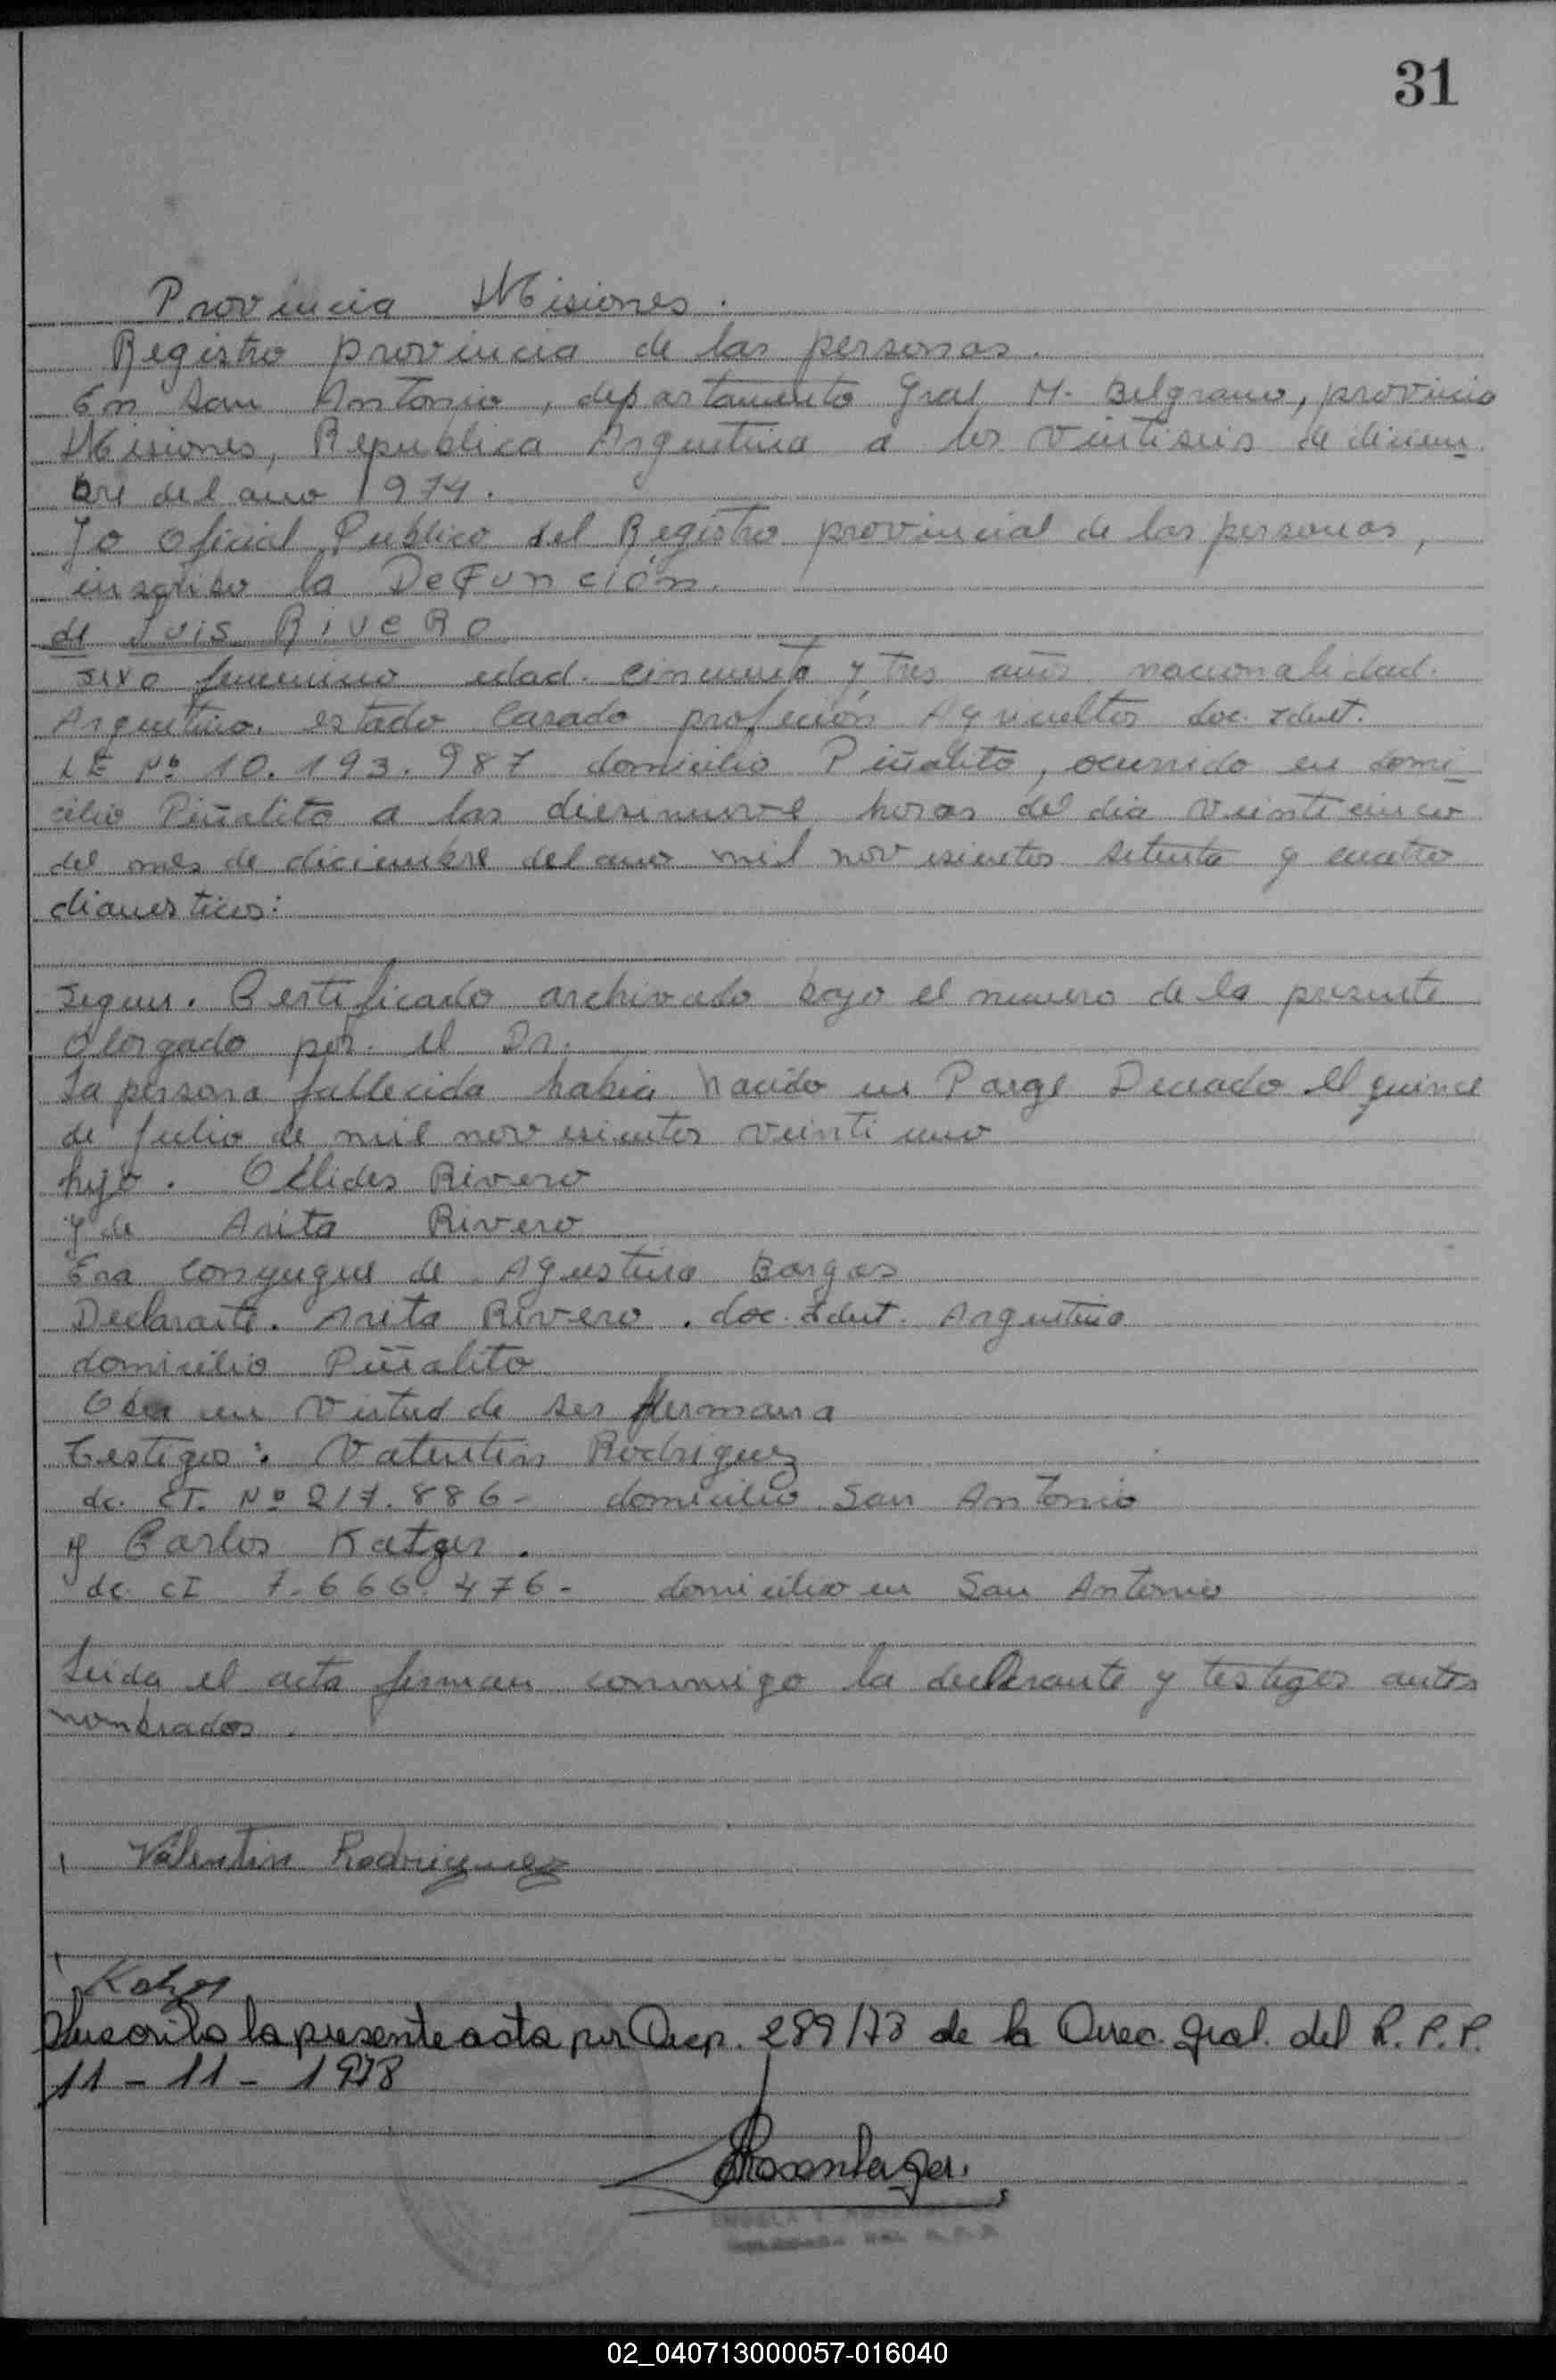 31
Provincia Misiones.
Registro provincia de las personas.
En San Antonio, departamento Gral M. Belgrano, provincia
Misiones, Republica Argentina a los vintiseis de diciem
bre del ano 1974.
Yo oficial Publico del Registro provincial de las personas,
inscribo la Defunción.
de Luis RiveRo
sexo femenino edad. cincuenta y tres años nacionalidad.
Argentino. estado Casado profeción Agricultor doc. Ident.
LE Nº 10.193.987 domicilio Piñalito, ocurrido en domi
cilio Piñalito a las diesinueve horas del dia veinticinco
del mes de diciembre del ano mil novesientos setenta y cuatro
dianosticos:
segun. Certificado archivado bajo el numero de la presente
otorgado por. el Dr.
La persona fallecida habia nacido en Parge el quince
de Julio de mil novesientos veinti uno
hijo. Rivero
y de Anita Rivero
Era conyugue de Agustina Bargas
Declarante. Anita Rivero. doc. Ident. Argentina
domicilio Piñalito
Obra en virtud de ser Hermana
Testigos: Valentin Rodriguez
dc. CI. Nº 217.886- domicilio San Antonio
y Carlos Katzer.
dc. CI 7.666.476- domicilio en San Antonio
Leida el acta firman conmigo la declarante y testigos antes
nombrados.
Valentin Rodriguez
Katzer
Suscribo la presente acta por Disp. 289/78 de la Direc. Gral. del R.P.P.
11-11-1978
02_040713000057-016040